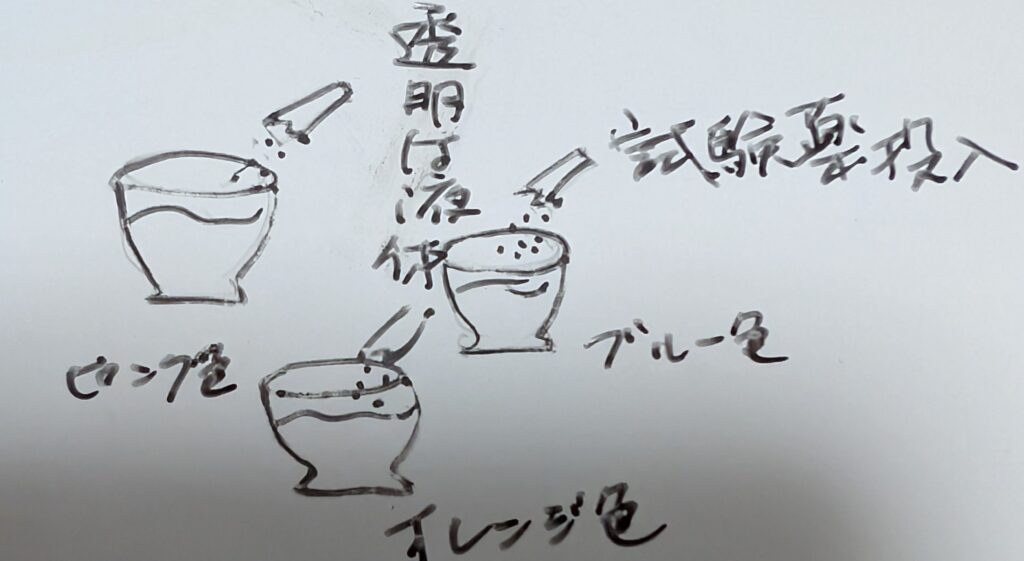 透明は液体
試験薬投入
ピンク色
ブルー色
オレンジ色